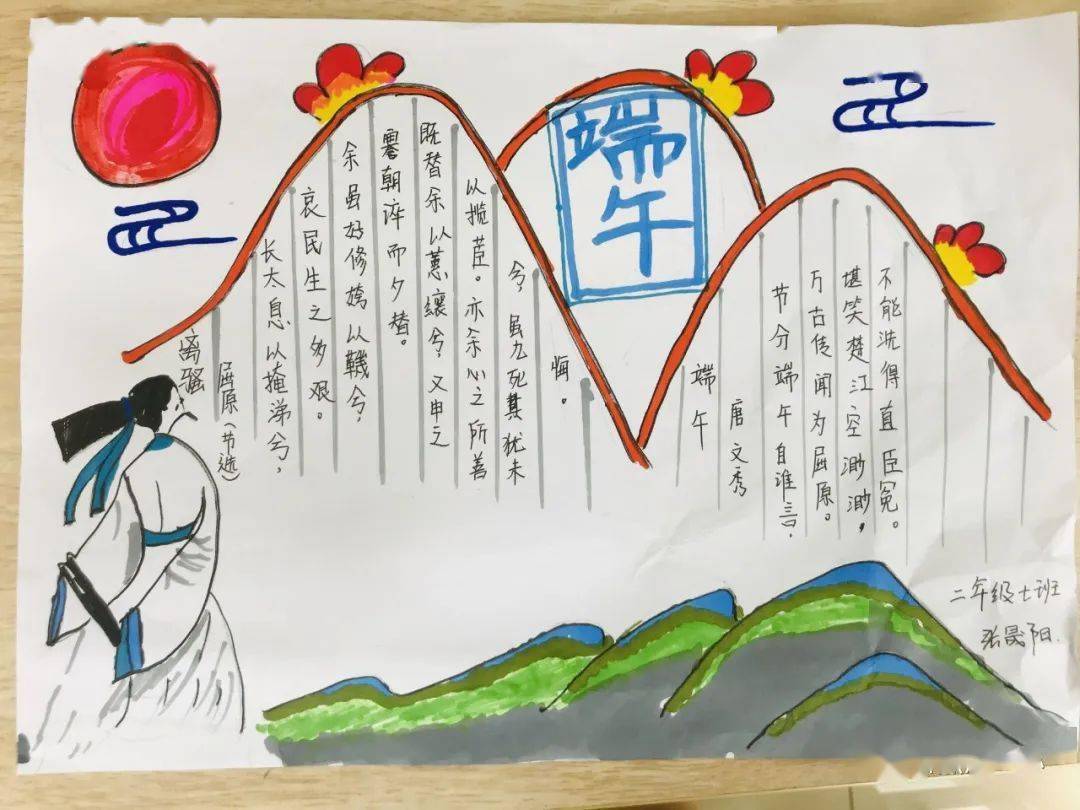 端午
离骚
屈原（节选）
长太息以掩涕兮，
哀民生之多艰。
余虽好修姱以鞿兮，
謇朝谇而夕替。
既替余以蕙纕兮，又申之
以揽茝。亦余心之所善
兮，虽九死其犹未
悔。
端午
唐 文秀
节分端午自谁言，
万古传闻为屈原。
堪笑楚江空渺渺，
不能洗得直臣冤。
二年级七班
张晟阳.